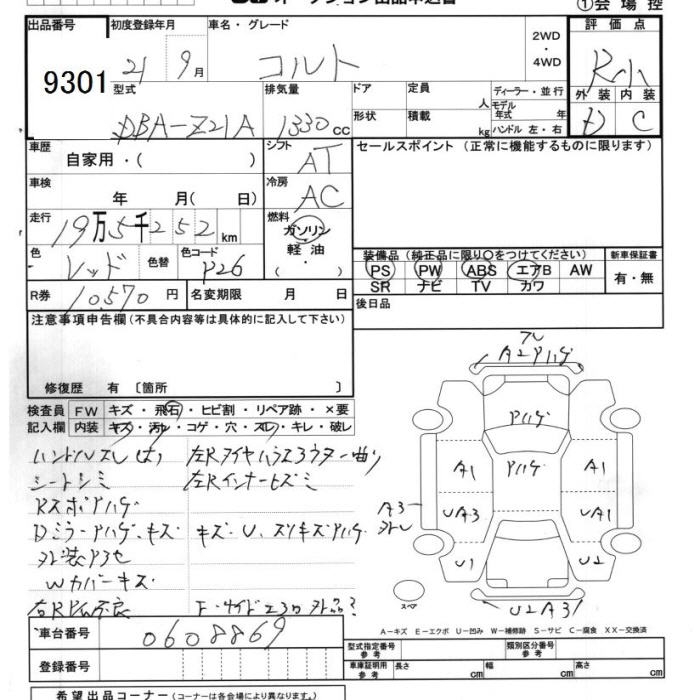 オークション出品申込書
①会場控
出品番号
9301
初度登録年月
21 9月
車名・グレード
コルト
2WD
・
4WD
評価点
R小
外装 内装
D C
型式
DBA-Z21A
排気量
1330cc
ドア
形状
定員 人
積載 kg
ディーラー・並行
モデル年式 年
ハンドル 左・右
車歴
自家用・( )
シフト
AT
セールスポイント(正常に機能するものに限ります)
車検
年 月( 日)
冷房
AC
走行
19万5千252km
燃料
ガソリン
・
軽油
・
( )
色
レッド
色替
色コード
P26
装備品(純正品に限り○をつけてください)
新車保証書
PS PW ABS エアB AW
SR ナビ TV カワ
有・無
R券 10,570円
名変期限 月 日
後日品
注意事項申告欄(不具合内容等は具体的に記入して下さい)
修復歴 有〔箇所 〕
検査員記入欄
FW キズ・飛石・ヒビ割・リペア跡・×要
内装 キズ・汚れ・コゲ・穴・スレ・キレ・破レ
ハンドルスレ
シートシミ
RスポPハゲ
Dミラー Pハゲ、キズ
Wカバーキズ
キズ・U、スリキズPハゲ
A2Pハゲ
Pハゲ
Pハゲ
A1
A1
UA3
UA1
A3
U1
U2
U2A3
スペア
A-キズ E-エクボ U-凹み W-補修跡 S-サビ C-腐食 XX-交換済
車台番号
0608869
登録番号
型式指定番号 参考
類別区分番号 参考
車庫証明用 参考
長さ cm
幅 cm
高さ cm
希望出品コーナー(コーナーは各会場により異なります。)